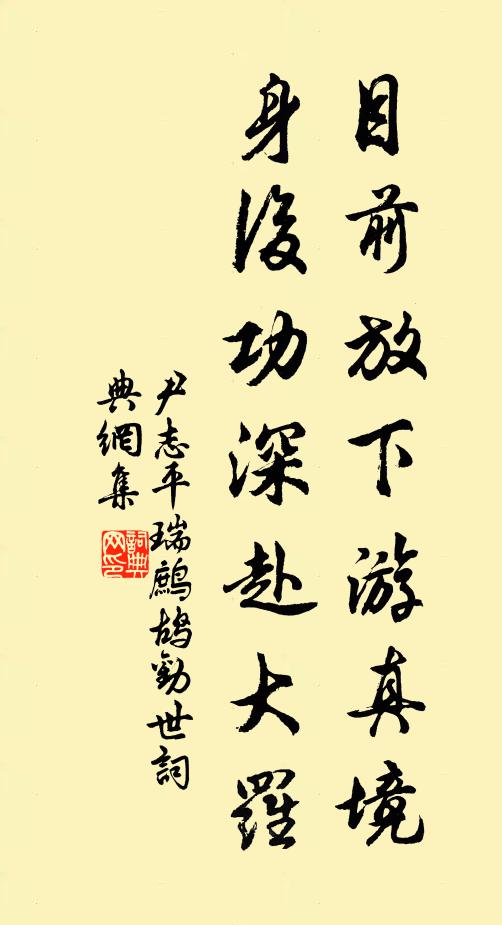 目前放下游真境
身後功深赴大羅
尹志平瑞鷓鴣勸世詞
典網集
詞典網印